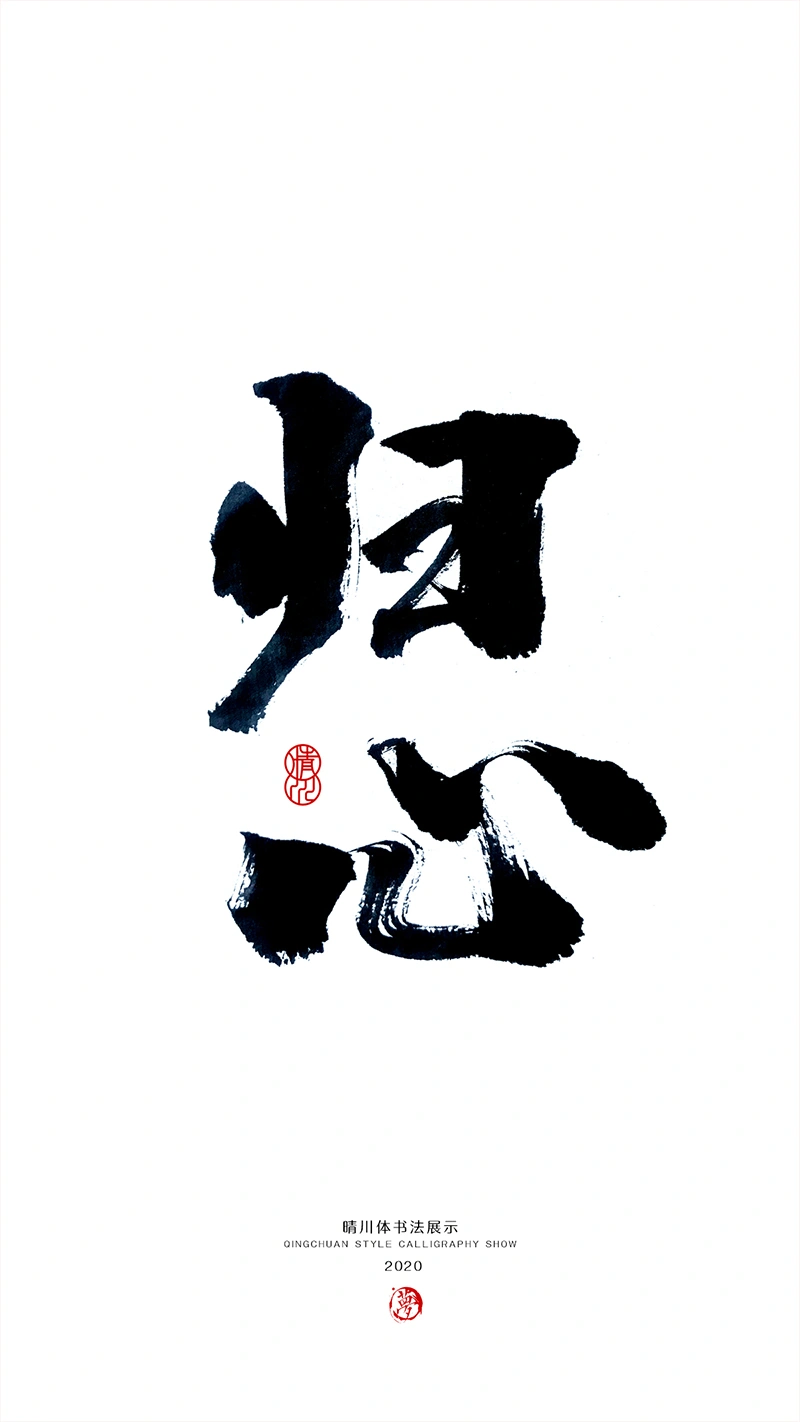 归
心
晴川
晴川体书法展示
QINGCHUAN STYLE CALLIGRAPHY SHOW
2020
夢